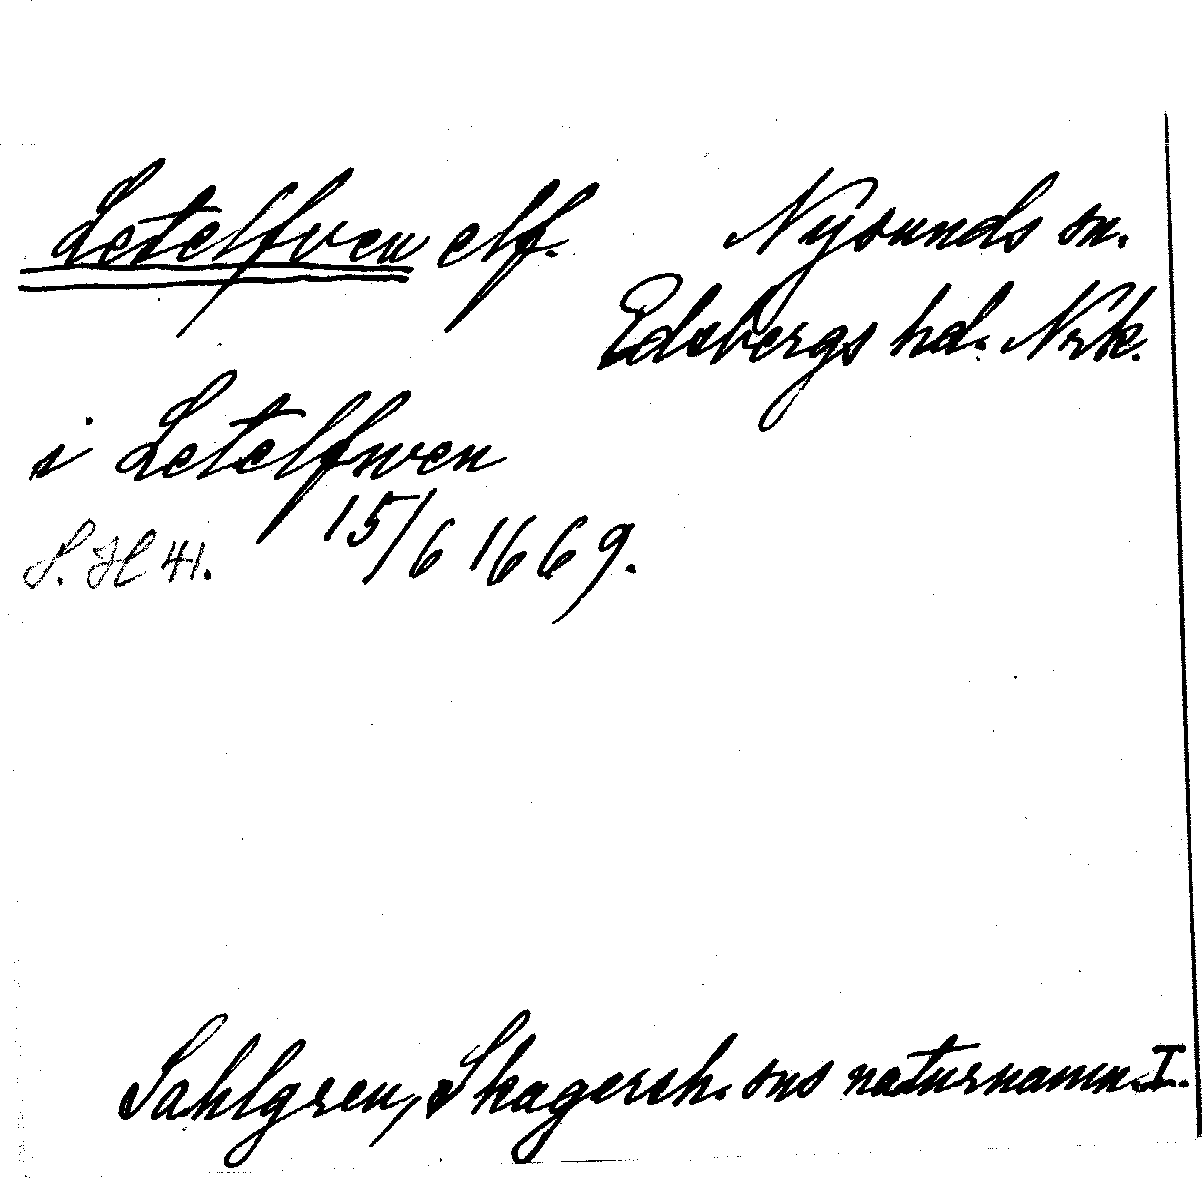 Letelfven elf. Nysunds sn.
Edsbergs hd. Nrk.
i Letelfwen
S. H 41. 15/6 1669.
Sahlgren, Skagersh. sns naturnamn. I.